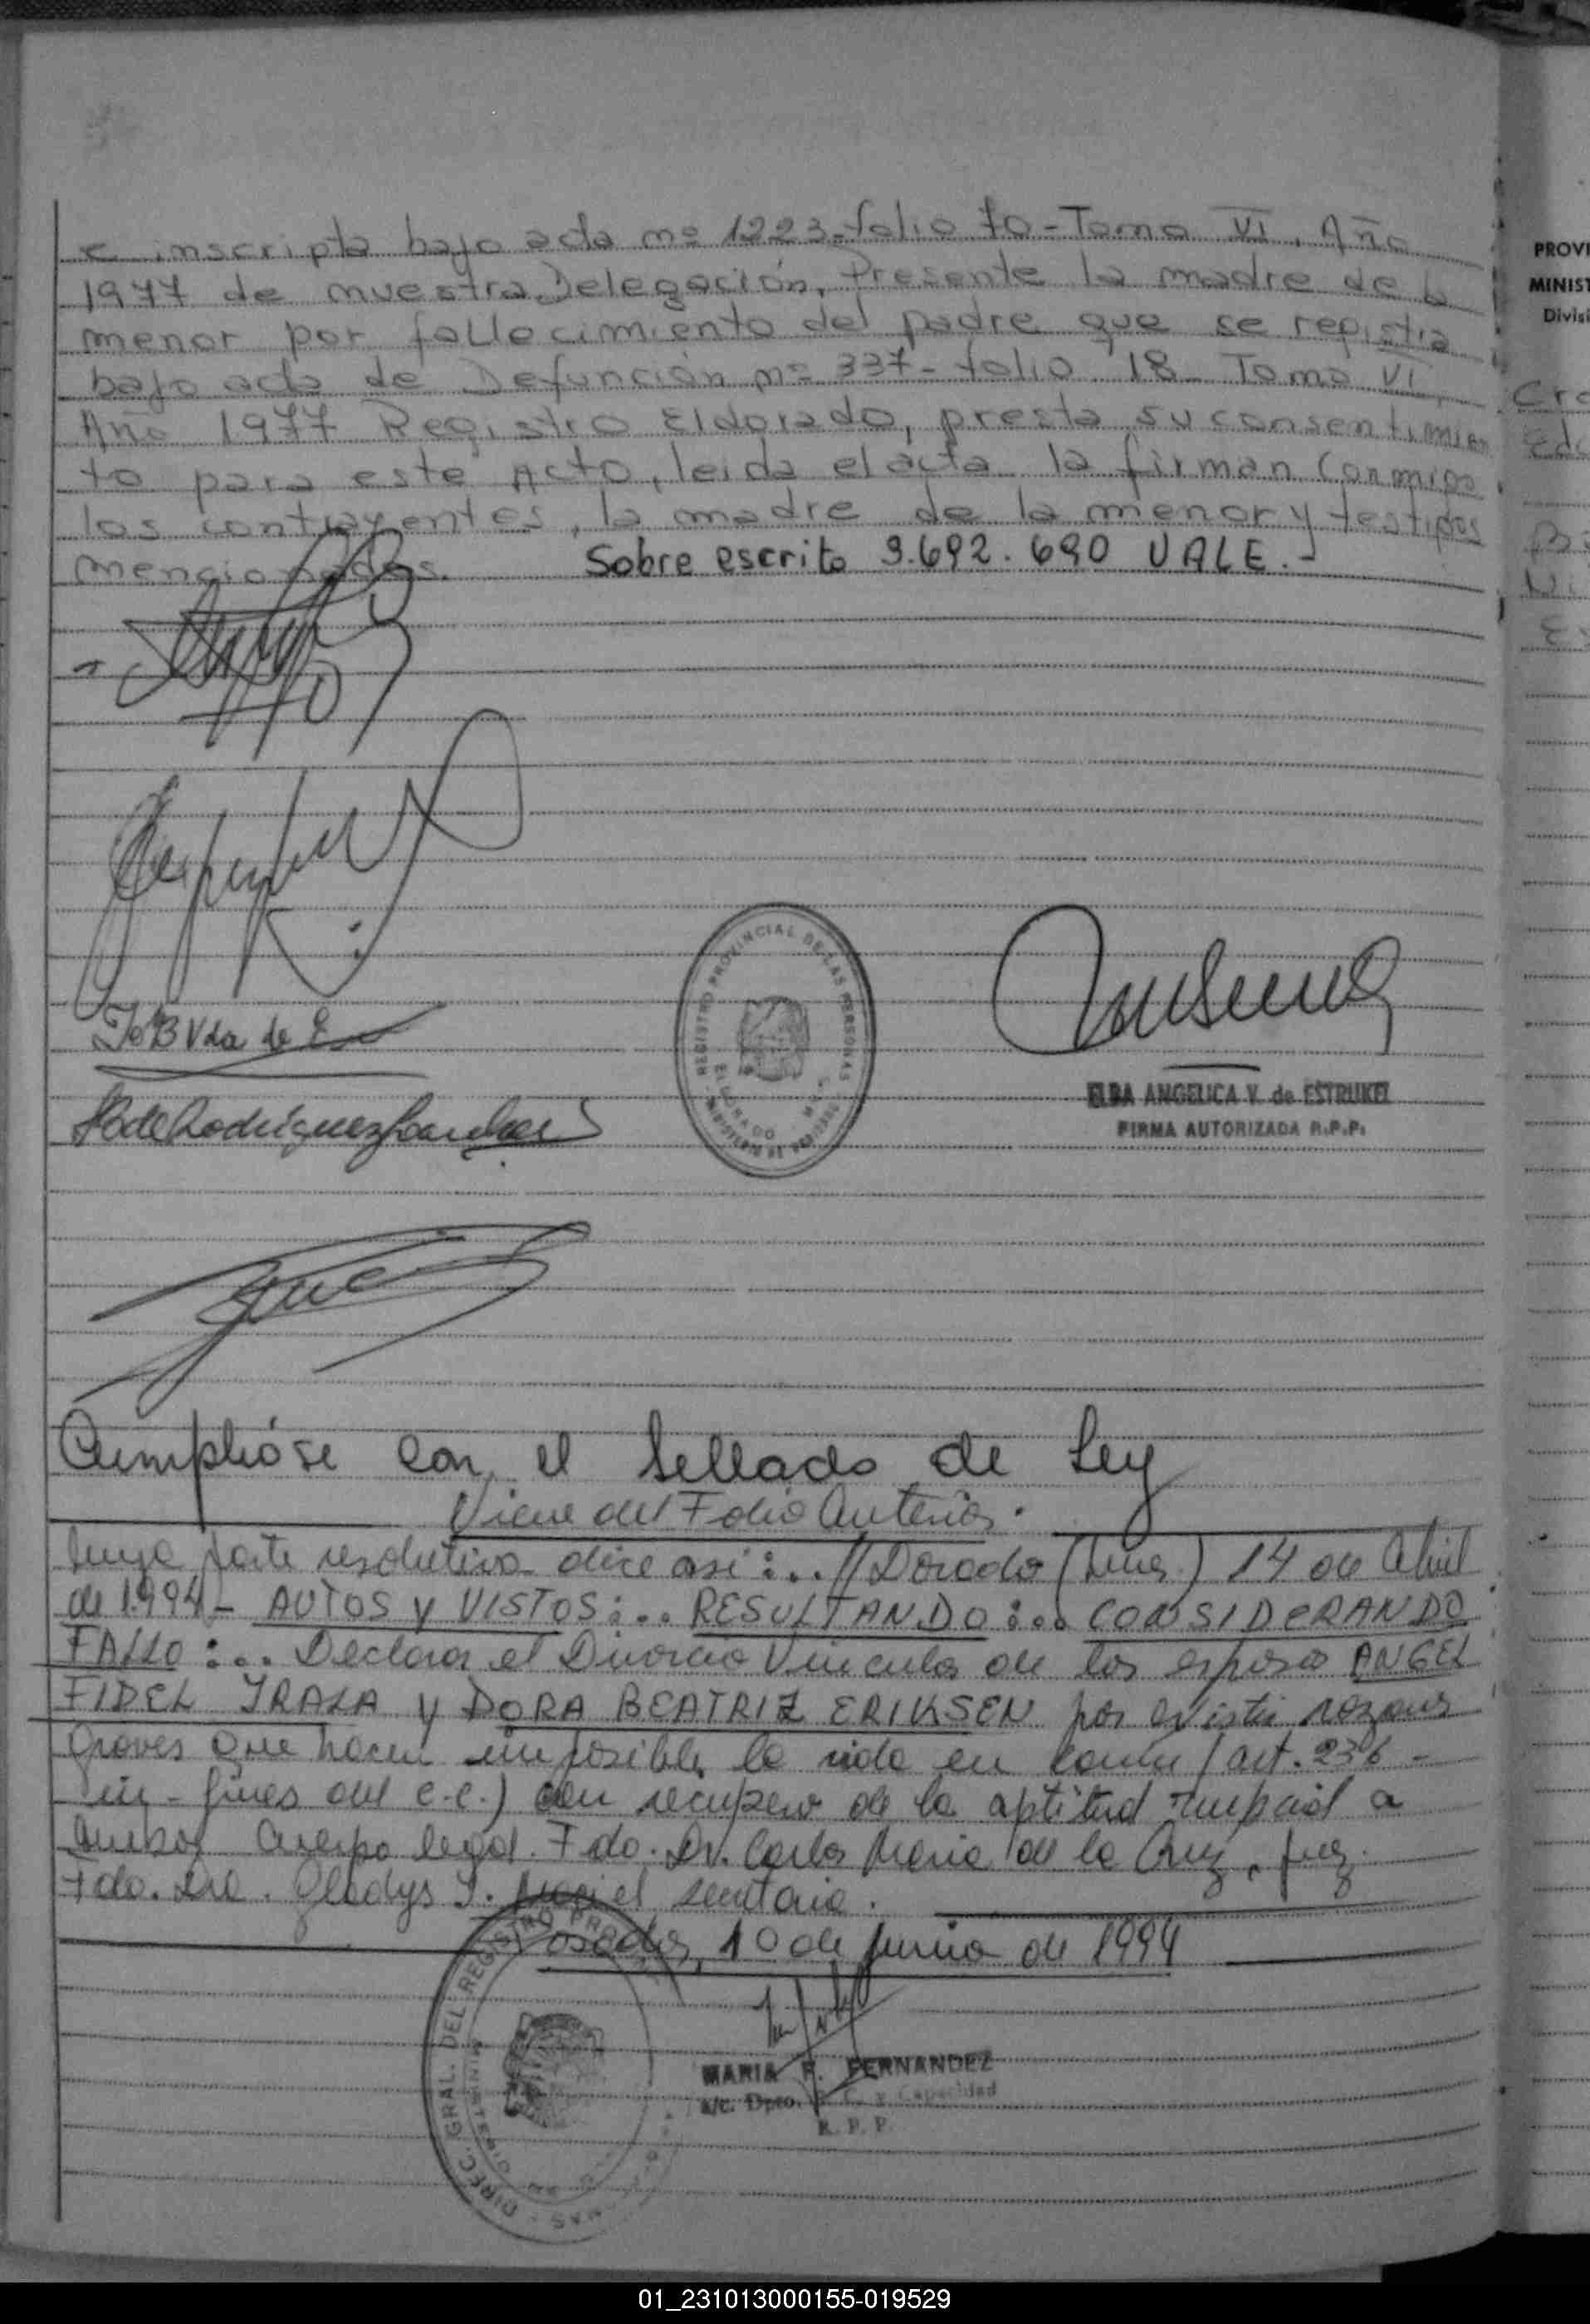 e inscripta bajo acta nº 1223-folio 70-Tomo VI. Año
1977 de nuestra Delegación. Presente la madre de la
menor por fallecimiento del padre que se registra
bajo acta de Defunción nº 337- folio 18- Tomo VI,
Año 1977 Registro Eldorado, presta su consentimien
to para este Acto, leida el acta la firman conmigo
los contrayentes, la madre de la menor y testigos
mencionados. Sobre escrito 3.692.690 VALE.-
Vda de
REGISTRO PROVINCIAL DE LAS PERSONAS
ELDORADO
ELBA ANGELICA V. de ESTRUKEL
FIRMA AUTORIZADA R.P.P.
Cumplióse con el Sellado de Ley
Viene del Folio Anterior.
cuya parte resolutiva dice así:..//Dorado (Mnes.) 14 de Abril
de 1.994- AUTOS y VISTOS:.. RESULTANDO:.. CONSIDERANDO
FALLO:... Declarar el Divorcio Vincular de los esposos ANGEL
FIDEL IRALA y DORA BEATRIZ ERIKSEN por existir razones
graves que hacen imposible la vida en común (art. 236-
in-fines del c.c.) con recupero de la aptitud nupcial a
Cuerpo legal. Fdo. Dr. Carlos Maria de la Cruz, Juez.
Fdo. Dra. Gladys secretaria.
Posadas, 10 de junio de 1994
DIREC. GRAL. DEL REGISTRO
MARIA F. FERNANDEZ
a/c. Dpto. C. y Capacidad
R. P. P.
PROVI
MINIST
Divisi
01_231013000155-019529